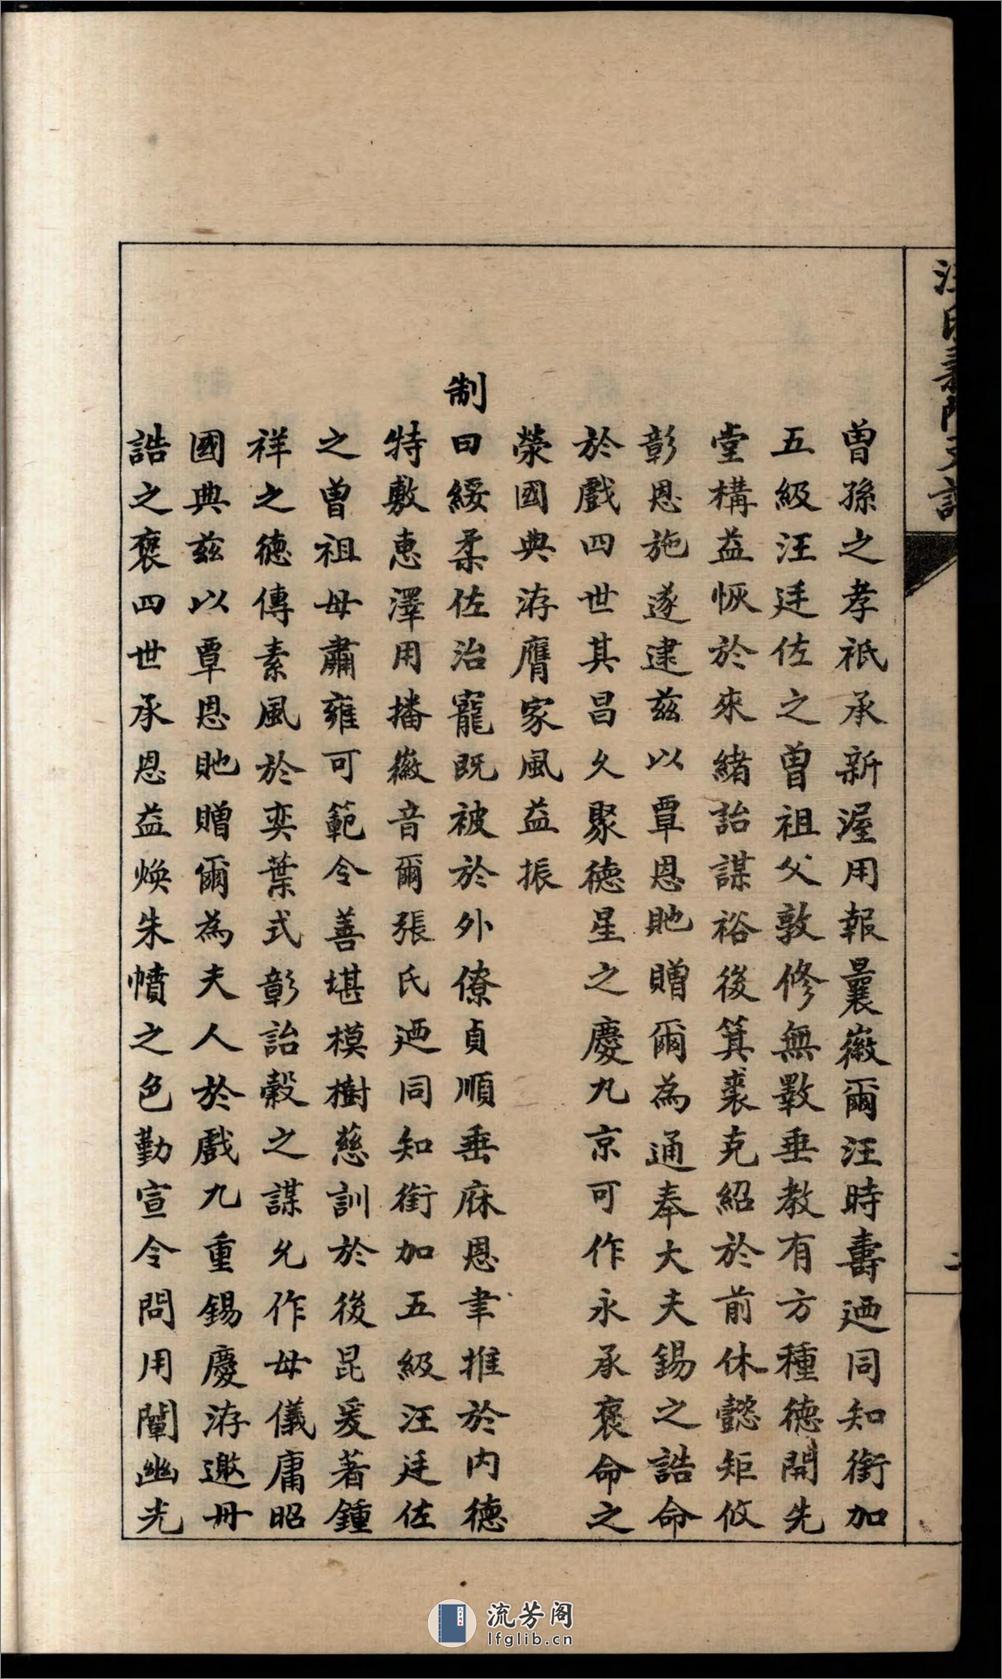 曾孫之孝祇承新渥用報曩徽爾汪時壽迺同知銜加
五級汪廷佐之曾祖父敦修無斁垂教有方種德開先
堂構益恢於來緒詒謀裕後箕裘克紹於前休懿矩攸
彰恩施遂逮茲以覃恩貤贈爾為通奉大夫錫之誥命
於戲四世其昌久聚德星之慶九京可作永承褒命之
榮國典洊膺家風益振
制曰綏柔佐治寵既被於外僚貞順垂庥恩聿推於内德
特敷惠澤用播徽音爾張氏迺同知銜加五級汪廷佐
之曾祖母肅雍可範令善堪模樹慈訓於後昆爰著鍾
祥之德傳素風於奕葉式彰詒穀之謀允作母儀庸昭
國典茲以覃恩貤贈爾為夫人於戲九重錫慶洊邀冊
誥之褒四世承恩益煥朱幩之色勤宣令問用闡幽光
流芳阁
lfglib.cn